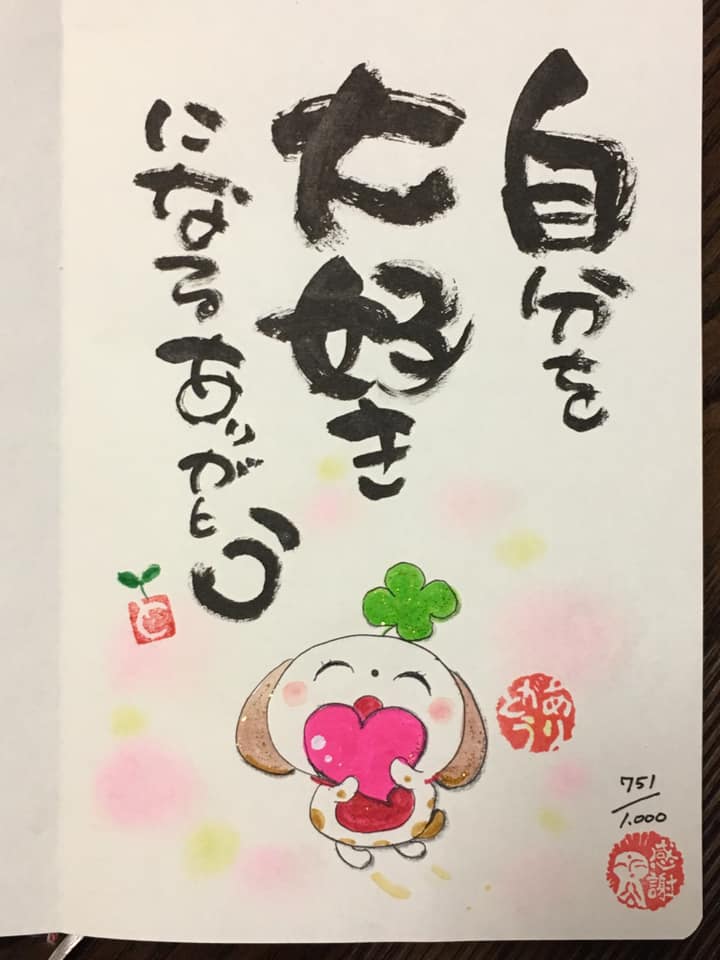 自分を
大好き
になる ありがとう
と
ありがとう
751/1.000
感謝